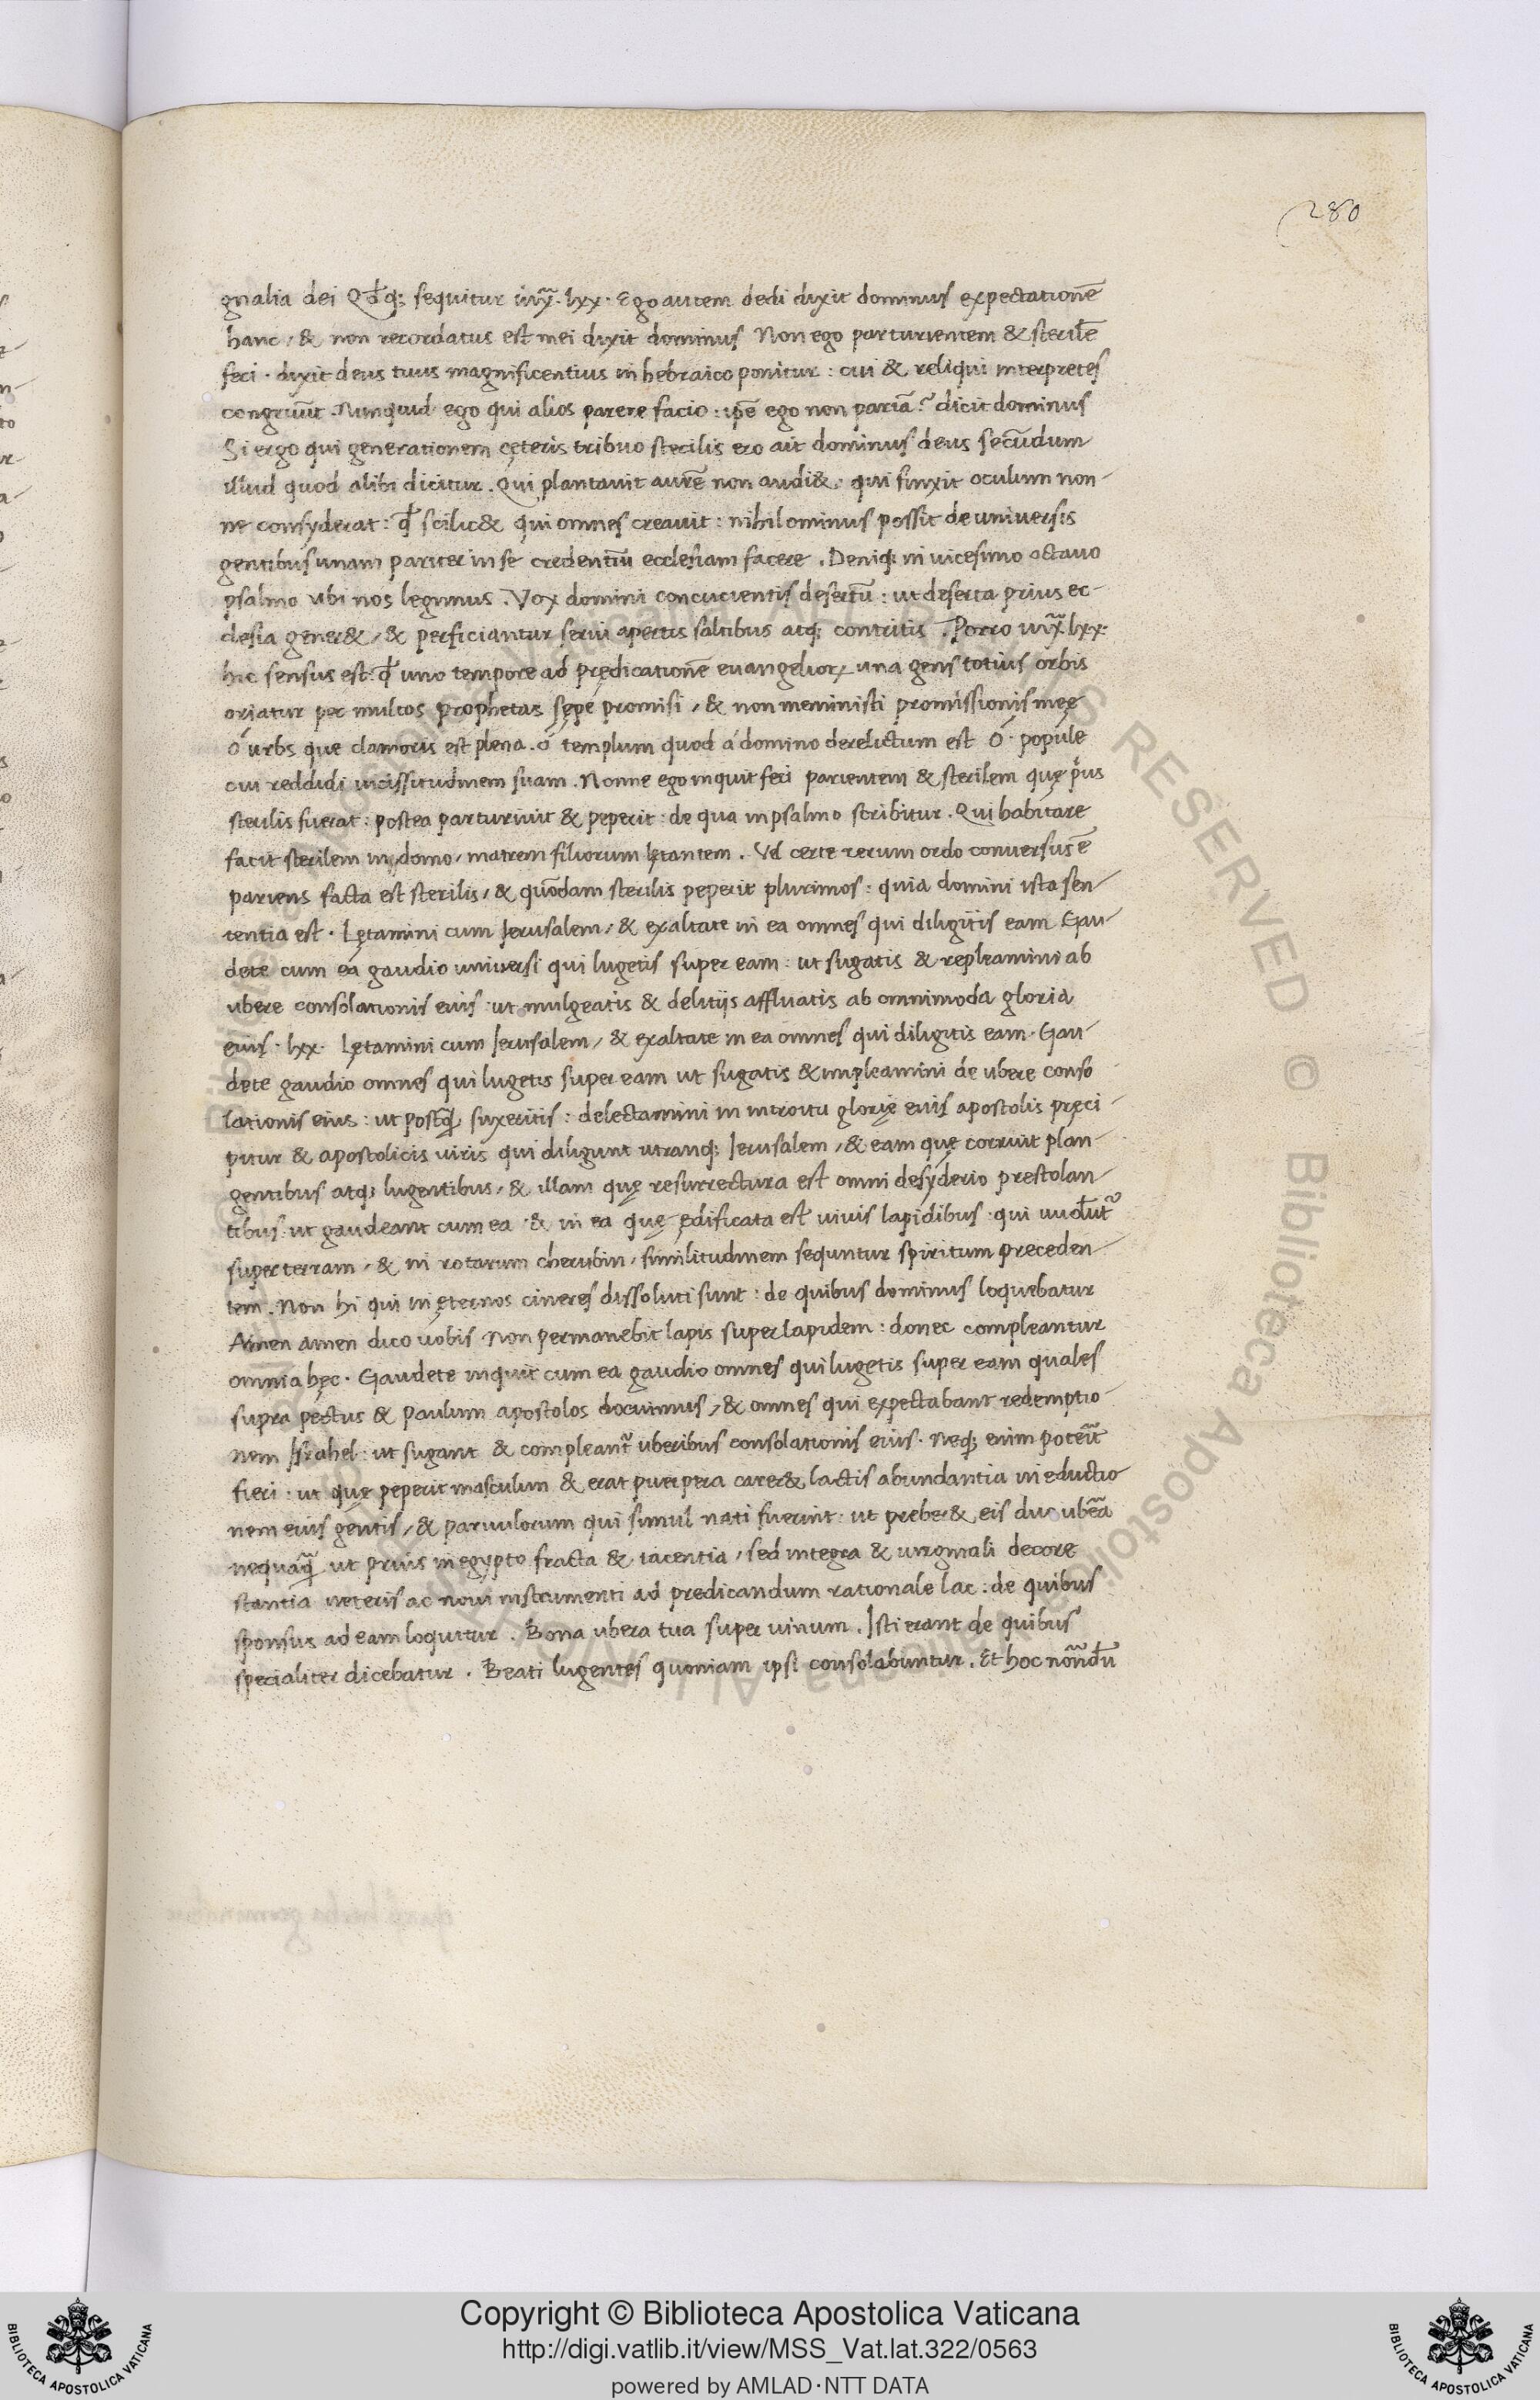 280
gnalia dei Qđq; sequitur iux̄. lxx. Ego autem dedi dixit dominus expectationē
hanc, & non recordatus est mei dixit dominus Non ego parturientem & sterilē
feci. dixit deus tuus magnificentius in hebraico ponitur: cui & reliqui interpretes
congruūt. Nunquid ego qui alios parere facio: ipē ego non pariā? dicit dominus
Si ergo qui generationem cęteris tribuo sterilis ero ait dominus deus secūdum
illud quod alibi dicitur. Qui plantauit aurē non audi&, qui finxit oculum non-
ne consyderat: qđ scilic& qui omnes creauit: nihilominus possit de uniuersis
gentibus unam pariter in se credentiū ecclesiam facere. Deniq; in uicesimo octauo
psalmo ubi nos legimus. Vox domini concucientis desertū: ut deserta prius ec-
clesia gener&, & perficiantur serui apertis saltibus atq; contritis. Porro iux̄ lxx.
hic sensus est: qđ uno tempore ad prędicationē euangelioꝝ una gens totius orbis
oriatur per multos prophetas sępe promisi, & non meministi promissionis meę
ó urbs que clamoris est plena. ó templum quod á domino derelictum est ó. popule
cui reddidi uicissitudinem suam. Nonne ego inquit feci parientem & sterilem quę pͥus
sterilis fuerat: postea parturiuit & peperit: de qua in psalmo scribitur. Qui habitare
facit sterilem in domo, matrem filiorum lętantem. Vel certe rerum ordo conuersus ē
pariens facta est sterilis, & quōdam sterilis peperit plurimos: quia domini ista sen-
tentia est. Lętamini cum Jerusalem, & exaltate in ea omnes qui diligitis eam Gau-
dete cum ea gaudio uniuersi qui lugetis super eam: ut sugatis & repleamini ab
ubere consolationis eius: ut mulgeatis & delitijs affluatis ab omnimoda gloria
eius. lxx. Lętamini cum Jerusalem, & exaltate in ea omnes qui diligitis eam. Gau-
dete gaudio omnes qui lugetis super eam ut sugatis & impleamini de ubere conso
lationis eius: ut postq̄ suxeritis: delectamini in introitu glorię eius apostolis pręci-
pitur & apostolicis uiris qui diligunt utranq; Jerusalem, & eam quę corruit plan-
gentibus atq; lugentibus, & illam quę resurrectura est omni desyderio prestolan-
tibus: ut gaudeant cum ea & in ea quę ędificata est uiuis lapidibus qui
super terram, & in rotarum cherubin, similitudinem sequntur spiritum preceden-
tem. Non hi qui in ęternos cineres dissoluti sunt: de quibus dominus loquebatur
Amen amen dico uobis Non permanebit lapis super lapidem: donec compleantur
omnia hęc. Gaudete inquit cum ea gaudio omnes qui lugetis super eam quales
supra pectus & paulum apostolos docuimus, & omnes qui expectabant redemptio-
nem Israhel: ut sugant & compleant᷑ uberibus consolationis eius. Neq; enim
fieri: ut quę peperit masculum & erat puerpera carer& lactis abundantia in eductio
nem eius gentis, & paruulorum qui simul nati fuerint: ut preber& eis duo ubēa
nequaq̄ ut prius in egypto fracta & iacentia, sed integra & uirginali decore
stantia ueteris ac noui instrumenti ad predicandum rationale lac: de quibus
sponsus ad eam loquitur. Bona ubera tua super uinum. Isti erant de quibus
specialiter dicebatur. Beati lugentes quoniam ipsi consolabuntur. Et hoc
Copyright © Biblioteca Apostolica Vaticana
http://digi.vatlib.it/view/MSS_Vat.lat.322/0563
powered by AMLAD·NTT DATA